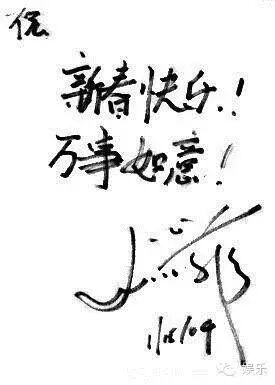 新春快乐!
万事如意!
1/18/04
娱乐